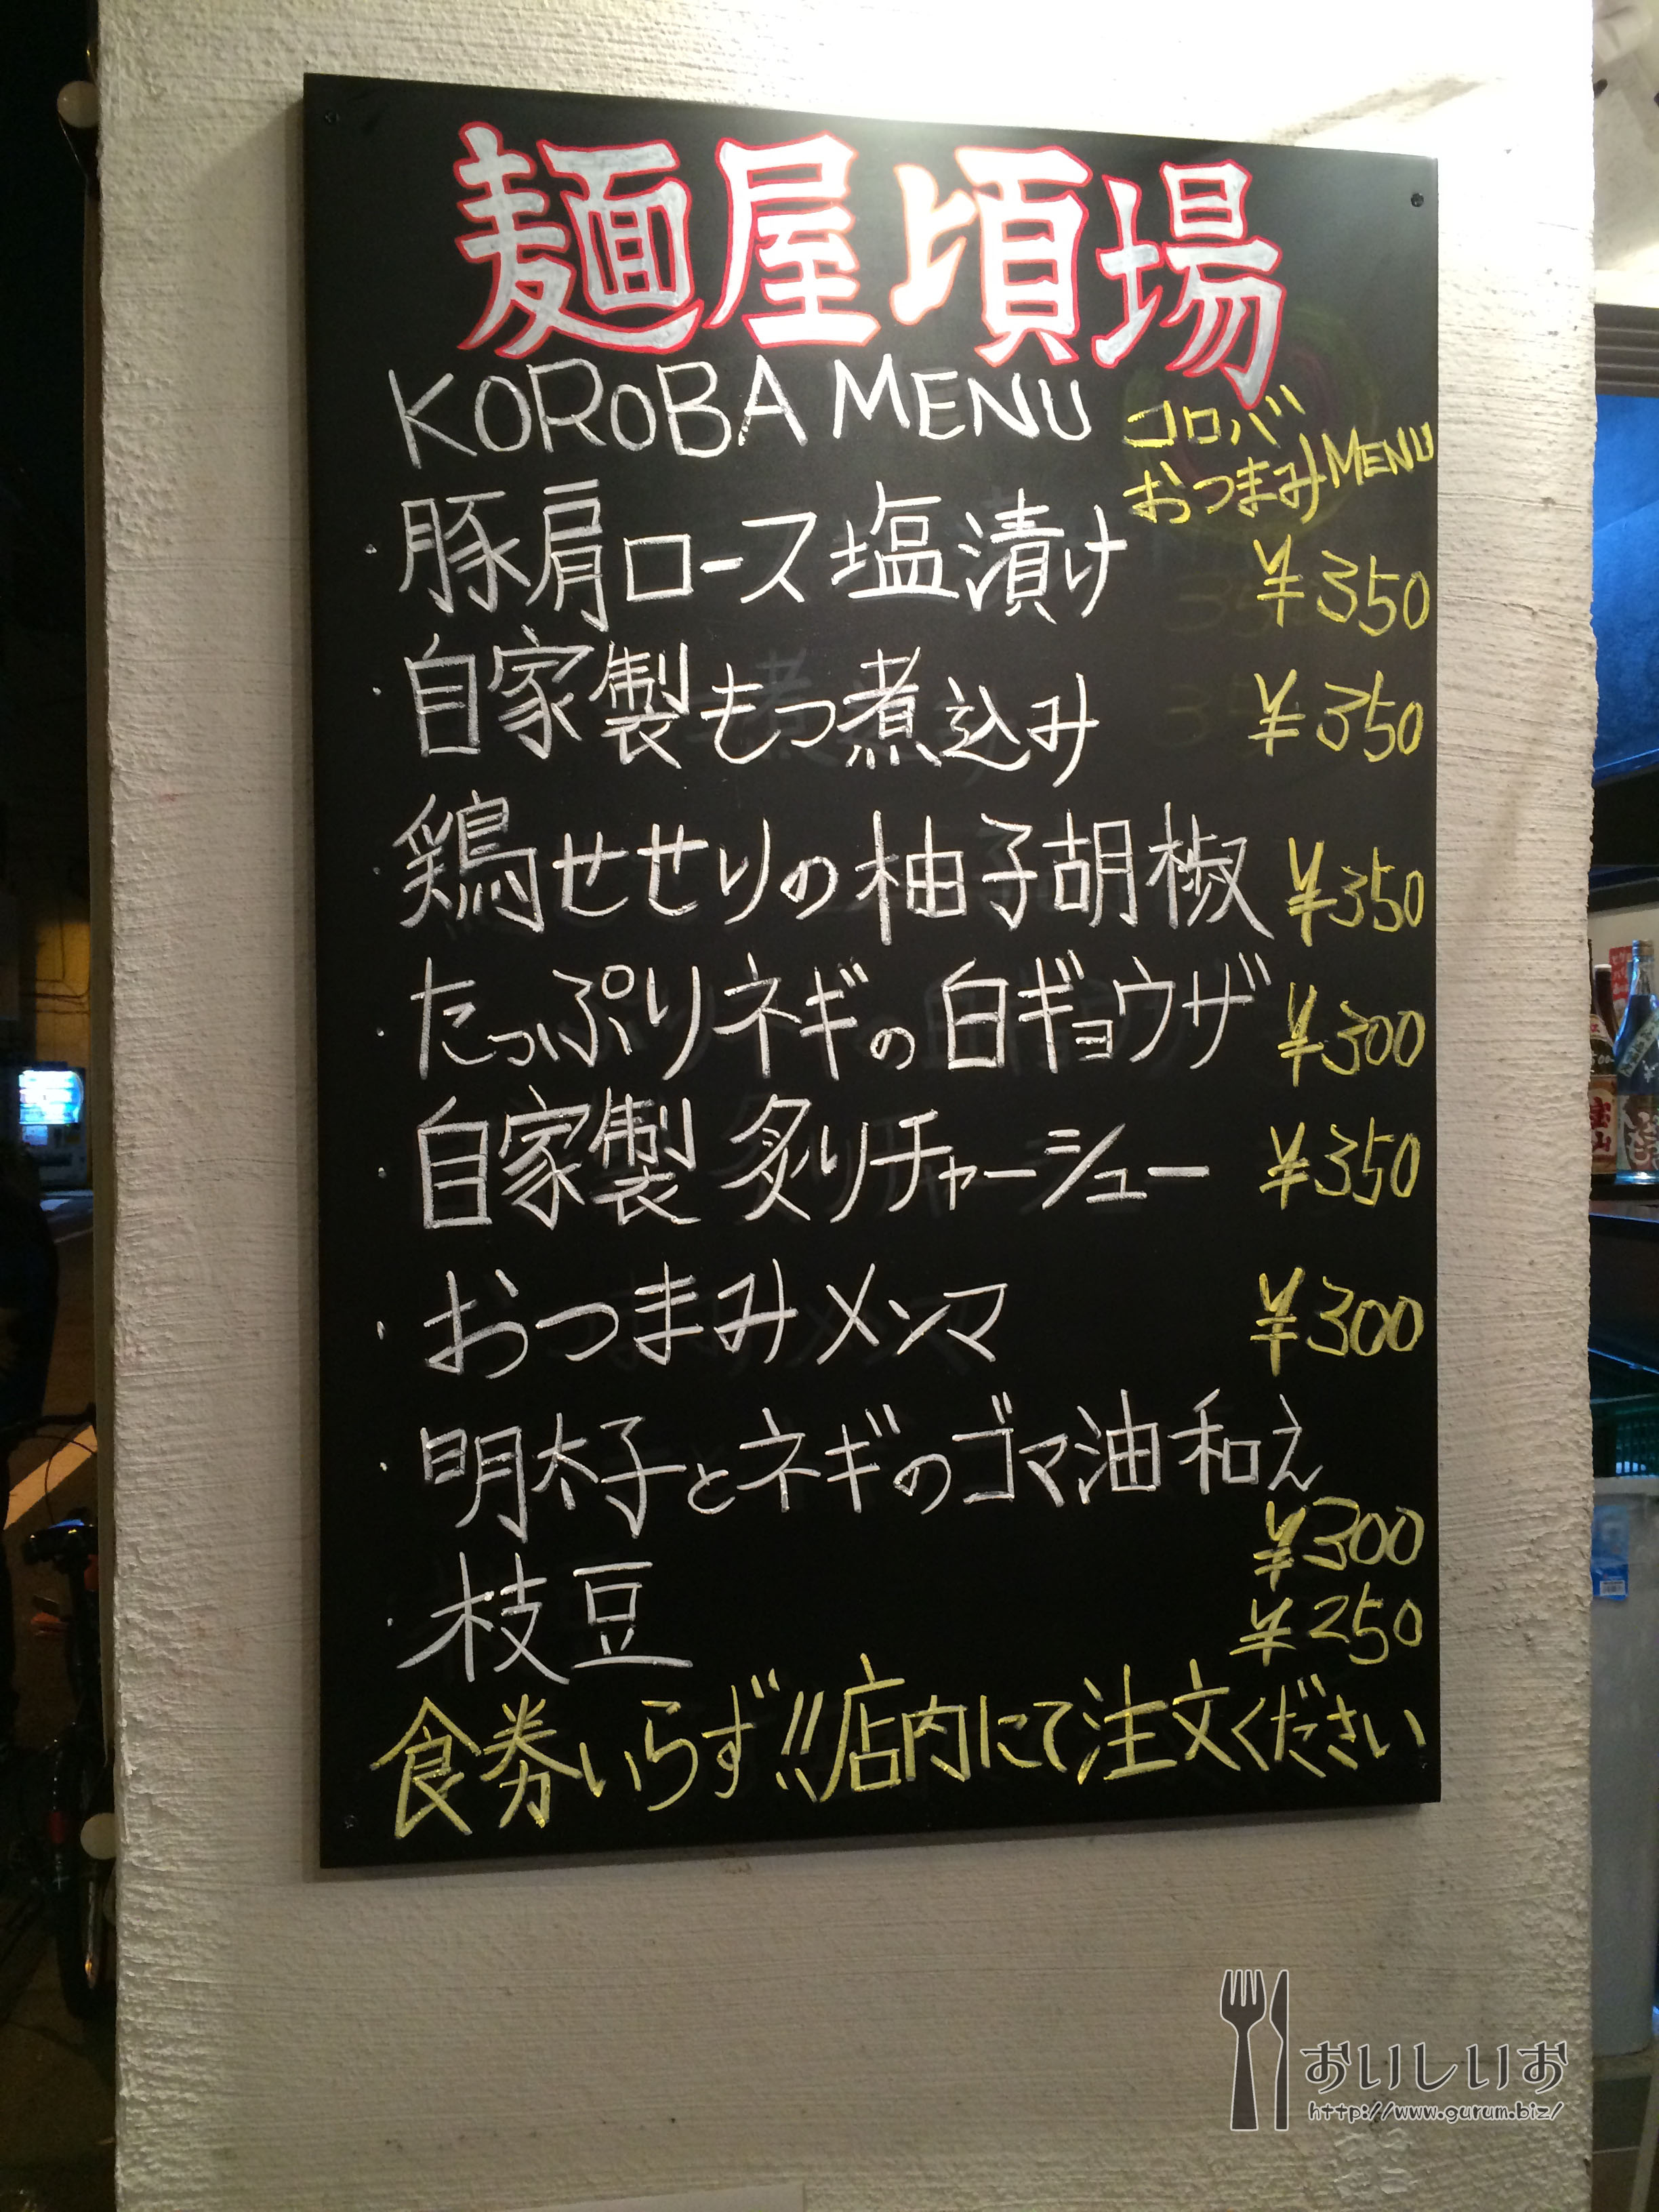 麺屋頃場
KOROBA MENU
コロバ
おつまみMENU
・豚肩ロース塩漬け ¥350
・自家製もつ煮込み ¥350
・鶏せせりの柚子胡椒 ¥350
・たっぷりネギの白ギョウザ ¥300
・自家製 炙りチャーシュー ¥350
・おつまみメンマ ¥300
・明太子とネギのゴマ油和え
¥300
・枝豆 ¥250
食券いらず!!店内にて注文ください
おいしいお
http://www.gurum.biz/